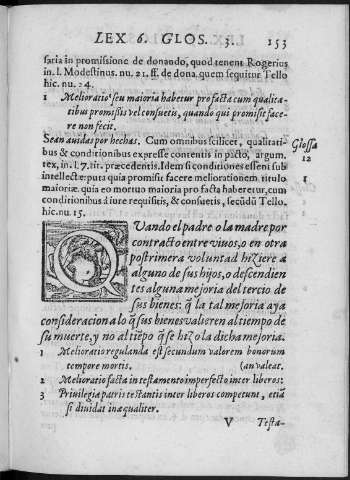 LEX 6. GLOS. 3. 153
saria in promissione de donando, quod tenent Rogerius
in. l. Modestinus. nu. 21. ff. de dona. quem sequitur Tello
hic. nu. 24.
1 Melioratio seu maioria habetur pro facta cum qualita-
tibus promissis vel consuetis, quando qui promisit face-
re non fecit.
Sean auidas por hechas. Cum omnibus scilicet, qualitati-
bus & conditionibus expresse contentis in pacto, argum.
tex. in. l. 7. tit. præcedentis. Idem si conditiones essent sub
intellectæ: puta quia promisit facere meliorationem titulo
maioriæ. quia eo mortuo maioria pro facta haberetur, cum
conditionibus à iure requisitis, & consuetis, secūdū Tello.
hic. nu. 15.
Glossa
12
1
QVando el padre o la madre por
contracto entre viuos, o en otra
postrimera voluntad hiziere a
alguno de sus hijos, o descendien
tes alguna mejoria del tercio de
sus bienes: q̃ la tal mejoria aya
consideracion a lo q̃ sus bienes valieren al tiempo de
su muerte, y no al tiēpo q̃ se hizo la dicha mejoria.
1 Melioratio regulanda est secundum valorem bonorum
tempore mortis. (an valeat.
2 Melioratio facta in testamento imperfecto inter liberos:
3 Priuilegia patris testantis inter liberos competunt, etiā
si diuidat inæqualiter.
V Testa-